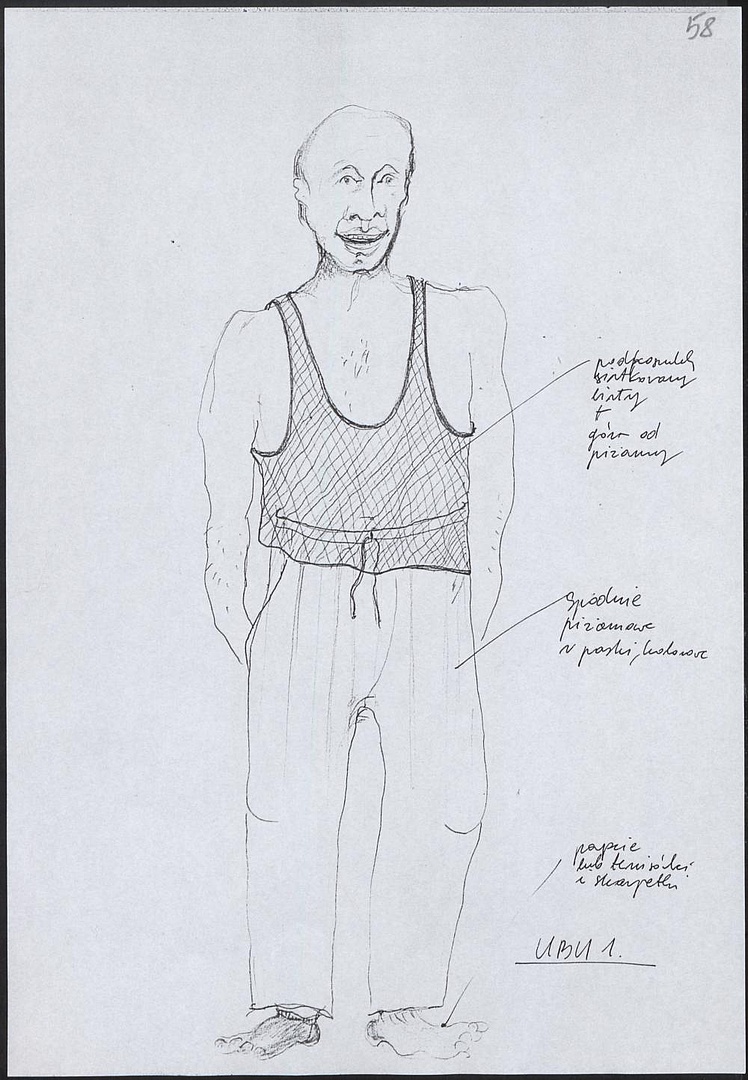 58
podkoszulek
siatkowany
+
góra od
piżamy
Spodnie
piżamowe
w paski, kolorowe
papcie
lub tenisówki
i skarpetki
UBU 1.